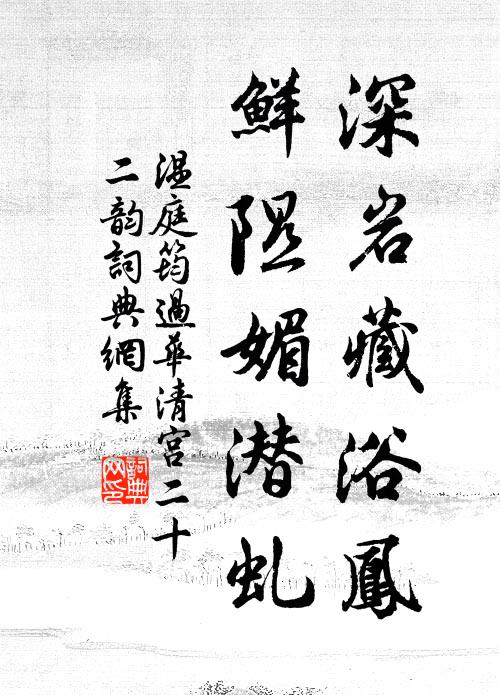 深岩藏浴鳳
鮮隰媚潛虬
温庭筠過華清宮二十
二韵詞典網集